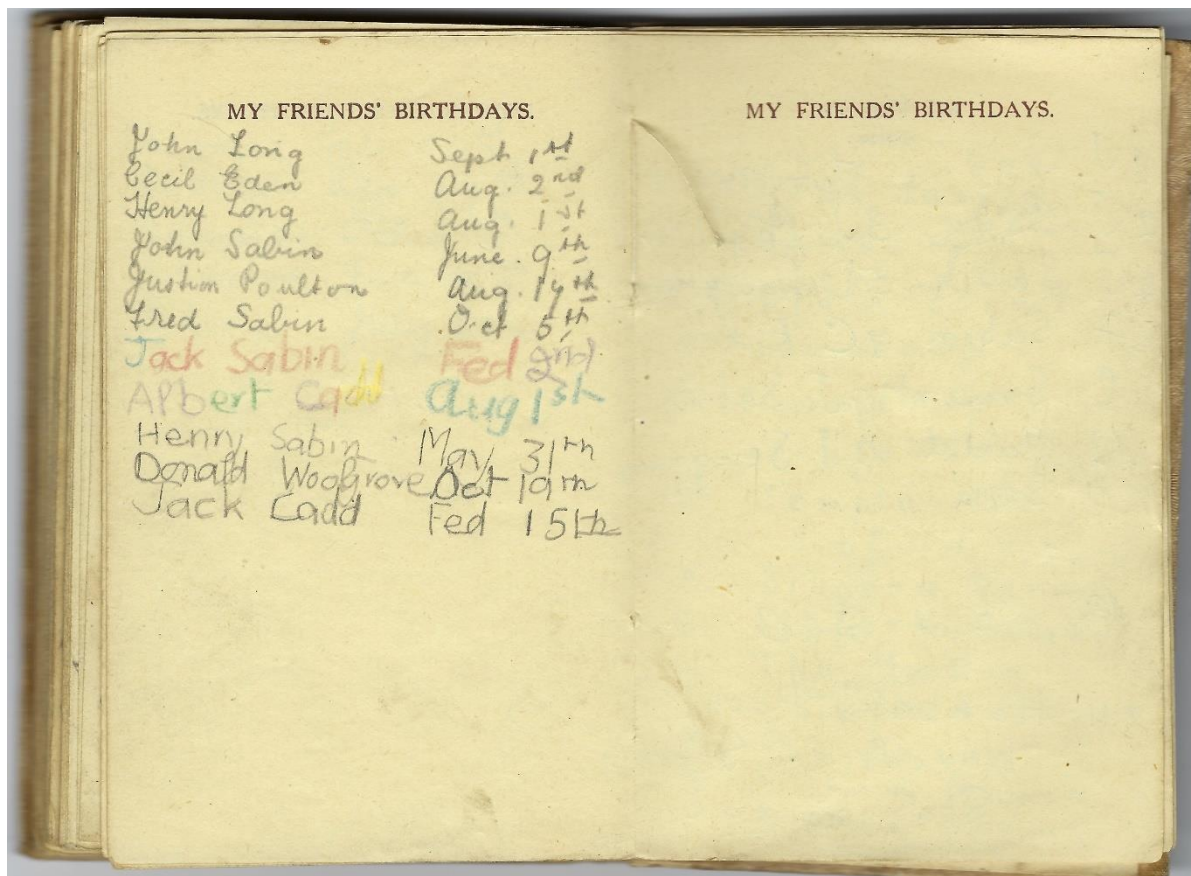 MY FRIENDS' BIRTHDAYS.
John Long Sept 1st
Cecil Eden Aug. 2nd
Henry Long Aug. 1st
John Sabin June. 9th
Poulton Aug. th
Fred Sabin Oct 5th
Jack Sabin Fed 2nd
Albert Cadd Aug 1st
Henry Sabin May 31th
Donald Woolgrove Oct 19th
Jack Cadd Fed 15th
MY FRIENDS' BIRTHDAYS.